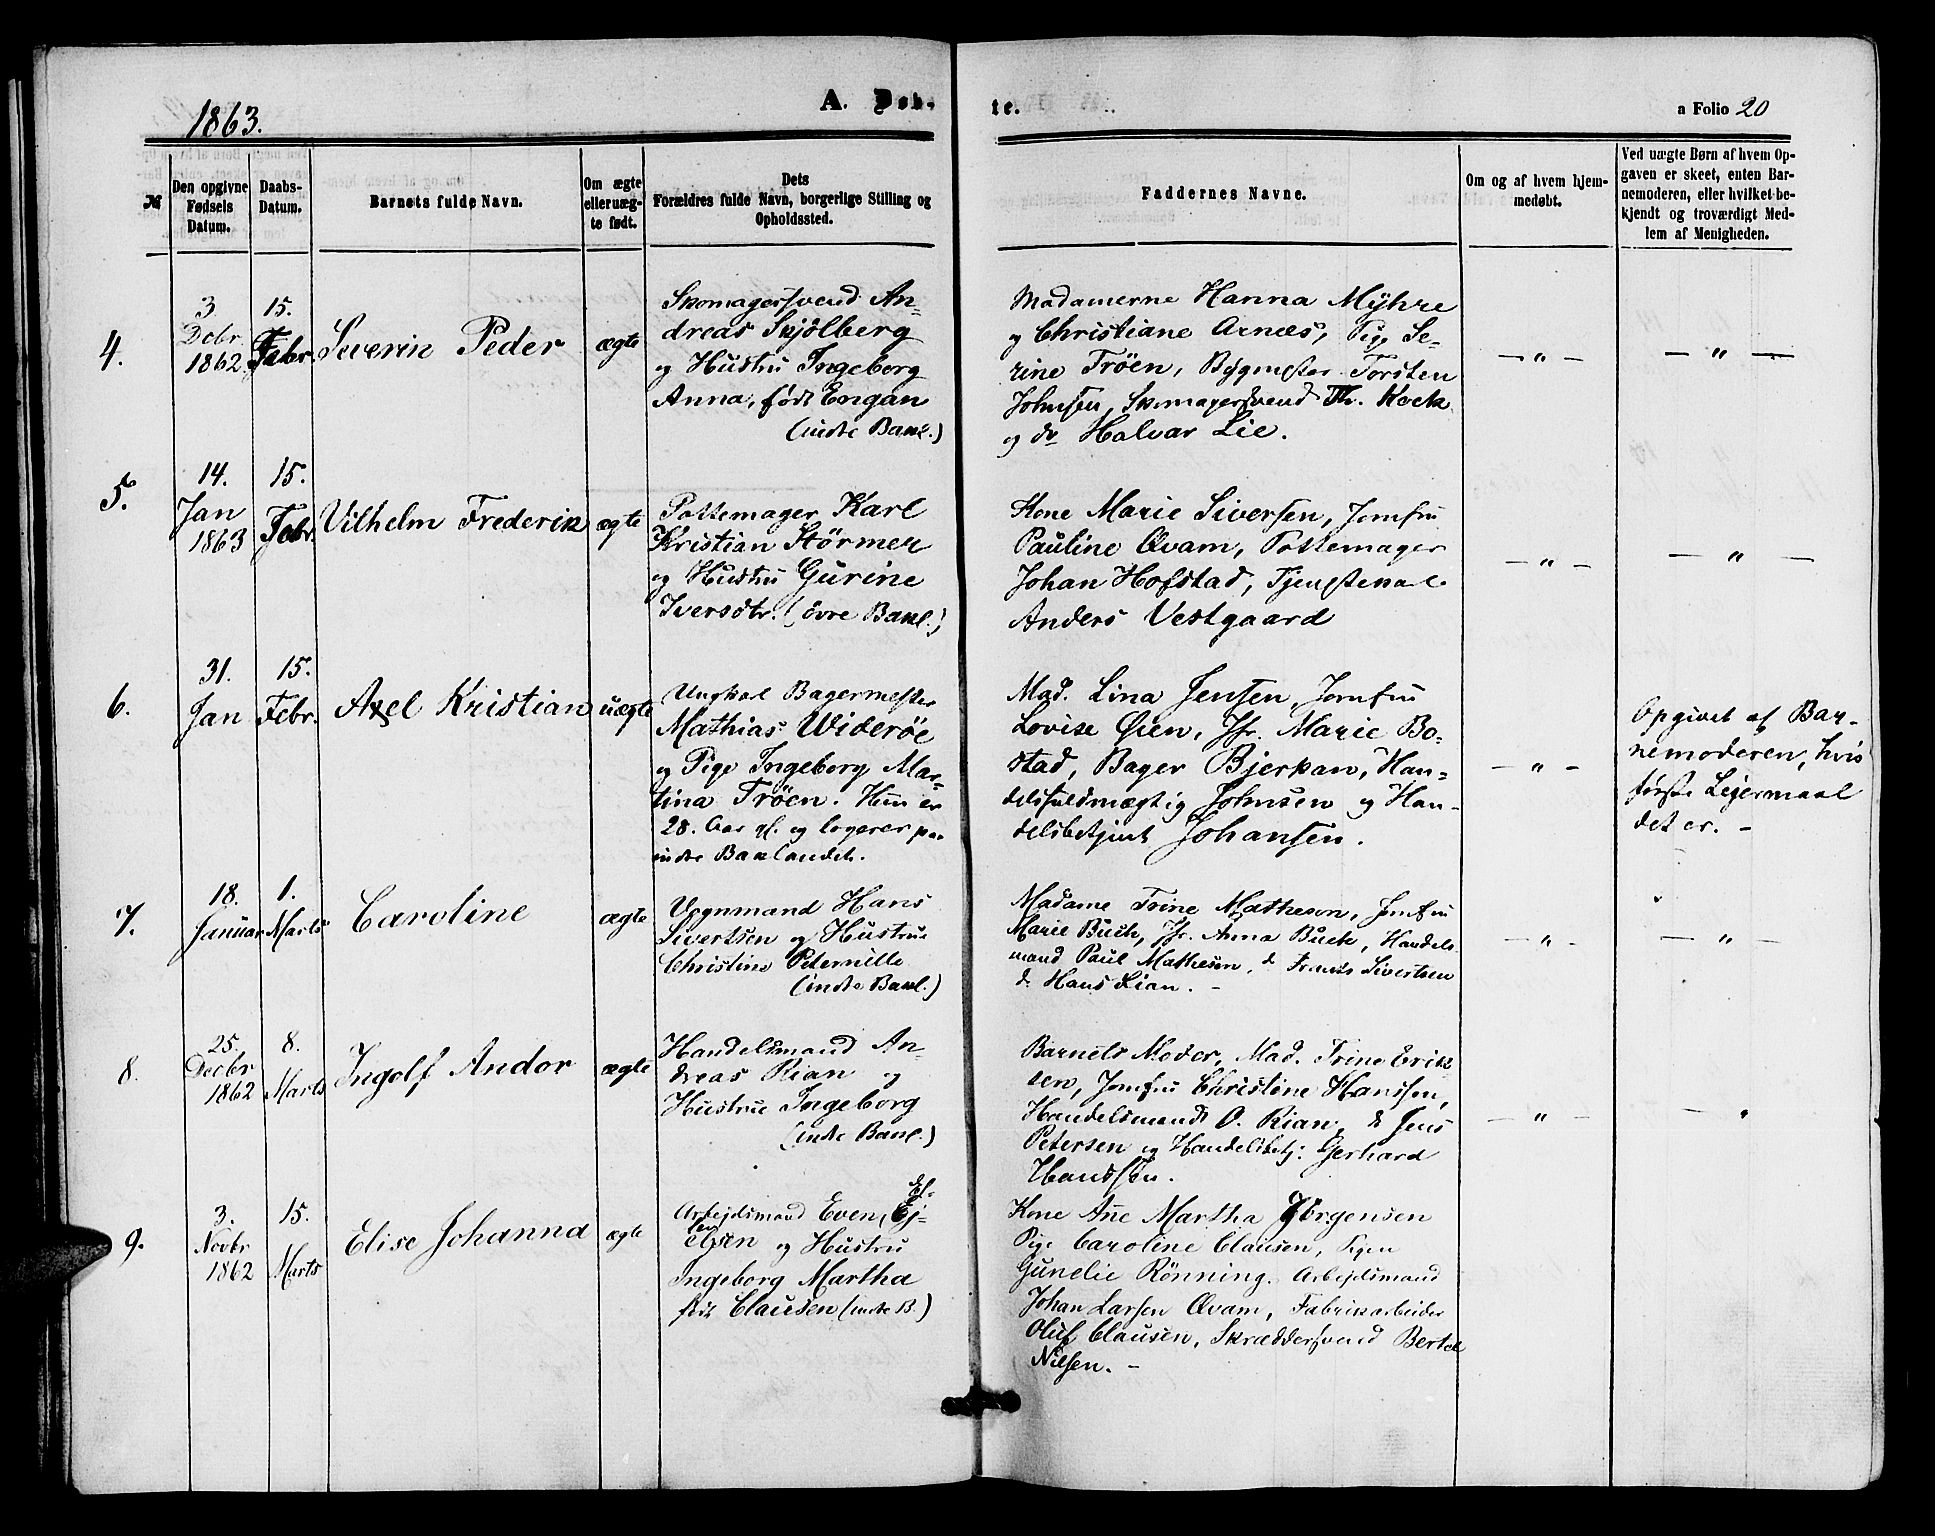 1863.
A. Døb-
te.
a Folio 20
№
Den opgivne
Fødsels
Datum.
Daabs-
Datum.
Barnets fulde Navn.
Om ægte
eller uæg-
te født.
Dets
Forældres fulde Navn, borgerlige Stilling og
Opholdssted.
Faddernes Navne.
Om og af hvem hjem-
medøbt.
Ved uægte Børn af hvem Op-
gaven er skeet, enten Bar-
nemoderen, eller hvilket be-
kjendt og troværdigt Med-
lem af Menigheden.
4.
3
Debr.
1862
15.
Febr.
Severin Peder
ægte
Skomagersvend An-
dreas Skjölberg
og Hustru Ingeborg
Anna, født Engan
(indre Bakl.)
Madamerne Hanna Myhre
og Christiane Arnæs, Pige Se-
rine Tröen, Bygmester Torsten
Johnsen, Skomagersvend Th. Kock
og do Halvar Lie.
— " —
— " —
5.
14.
Jan
1863
15.
Febr.
Vilhelm Frederik
ægte
Pottemager Karl
Kristian Störmer
og Hustru Gurine
Iversdtr. (övre Bakl.)
Kone Marie Siversen, Jomfru
Pauline Qvam, Pottemager
Johan Hofstad, Tjenestekal
Anders Vestgaard
— " —
— " —
6.
31.
Jan
15.
Febr.
Axel Kristian
uægte
Ungkal Bagermester
Mathias Wideröe
og Pige Ingeborg Mar-
tina Tröen. Hun er
28 Aar gl. og logerer paa
indre Baklandet.
Mad. Lina Jensen, Jomfru
Lovise Øien, Jfr. Marie Bo-
stad, Bager Bjerkan, Han-
delsfuldmægtig Johnsen og Han-
delsbetjent Johansen.
— " —
Opgivet af Bar-
nemoderen, hvis
første Leiermaal
det er. -
7.
18.
Januar
1.
Marts
Caroline
ægte
Vognmand Hans
Sivertsen og Hustru
Christine Peternille
(indre Bakl.)
Madame Trine Matheson, Jomfru
Marie Buch, Jfr. Anna Buck, Handels
mand Paul Mathesen, do Frants Sivertsen
do Hans Lian. -
— " —
— " —
8.
25.
Decbr
1862
8.
Marts
Ingolf Andor
ægte
Handelsmand An-
dreas Rian og
Hustru Ingeborg
(indre Bakl.)
Barnets Moder, Mad. Trine Erik
sen, Jomfru Christine Hanssen,
Handelsmand O. Rian, do Jens
Petersen og Handelsbetj: Gerhard
Hanssen.
— " —
— "
9.
3.
Novbr
1862
15.
Marts
Elise Johanna
ægte
Arbejdsmand Even
og Hustru
Ingeborg Martha
født Clausen (indre B.)
Kone Ane Martha Jörgensen
Pige Caroline Clausen, Pigen
Gunelie Rönning. Arbejdsmand
Johan Larsen Qvam, Fabrikarbeider
Oluf Clausen, Skræddersvend Bertel
Nilsen. -